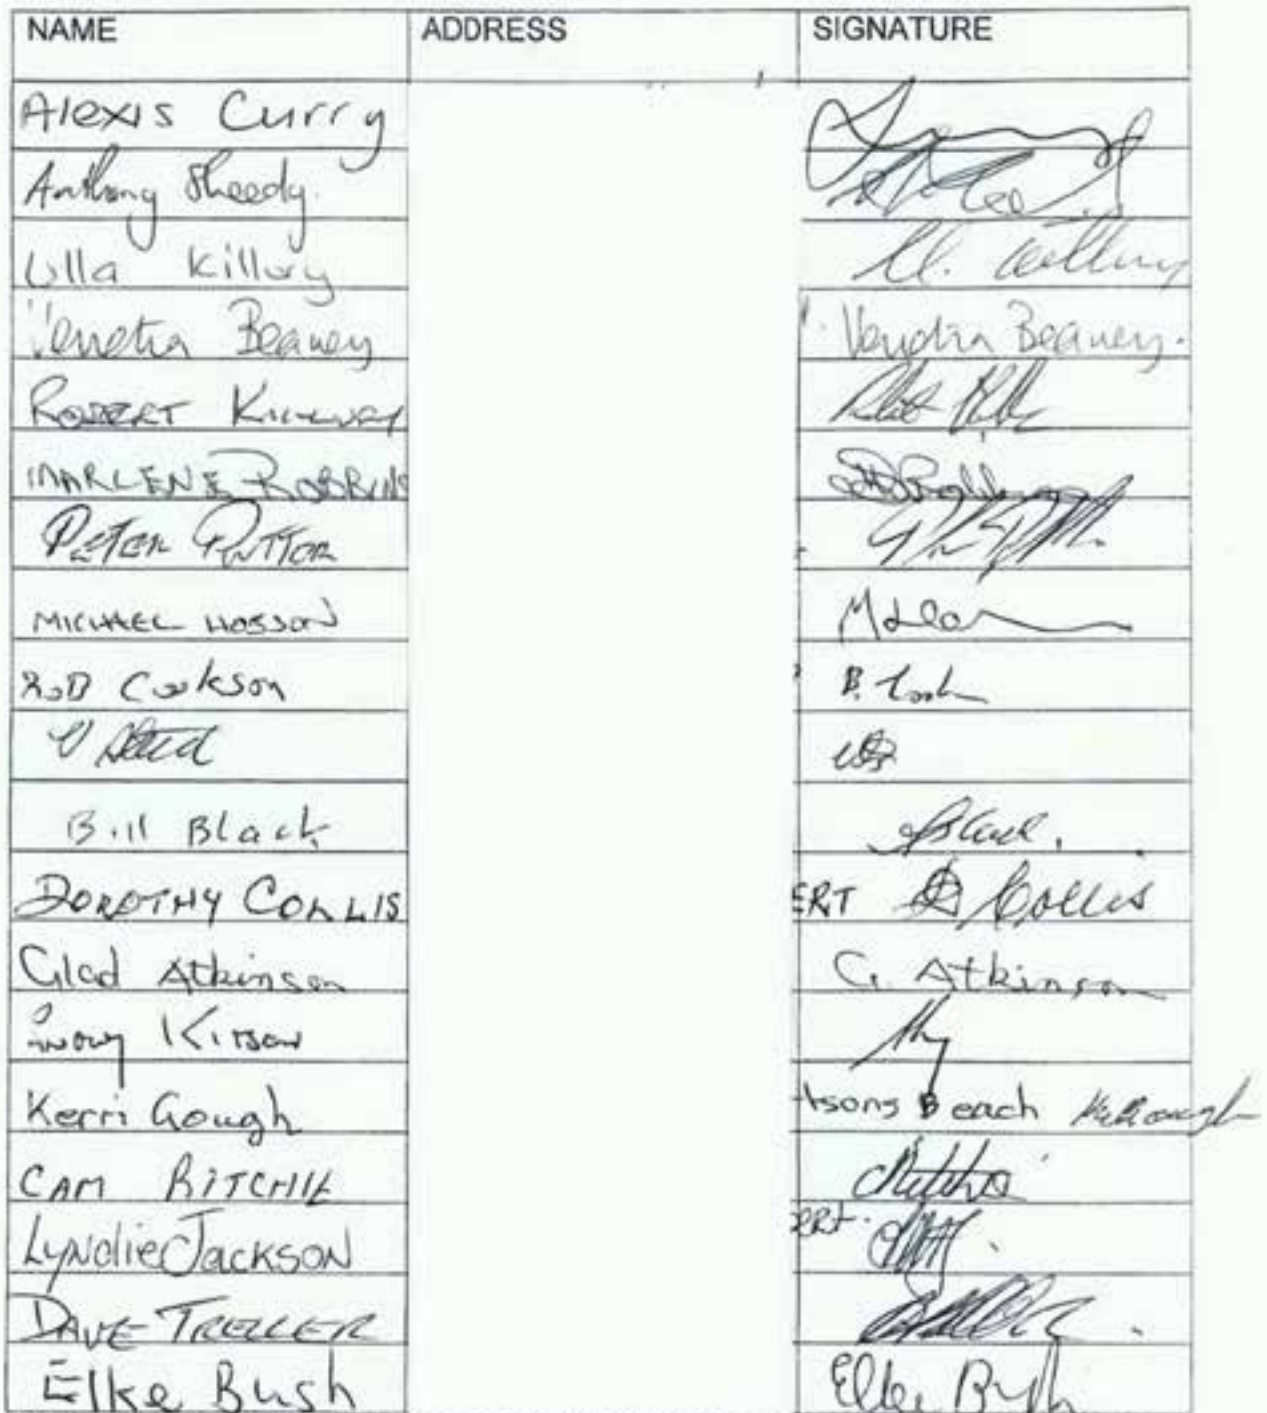 NAME ADDRESS SIGNATURE
Alexis Curry
Anthony Sheedy.
Ulla Killury
Venetia Beaney Venetia Beaney.
ROBERT
MARLENE ROBBINS
PETER
MICHAEL HOBSON
ROB Cookson B. Cook
Bill Black Black.
DOROTHY COLLIS ERT D Collis
Glad Atkinson G. Atkinson
Kitson
Kerri Gough tsons Beach
CAM RITCHIE CRitchie
Lyndie JACKSON ERT.
DAVE TRELLER
Elke Bush Elke Bush